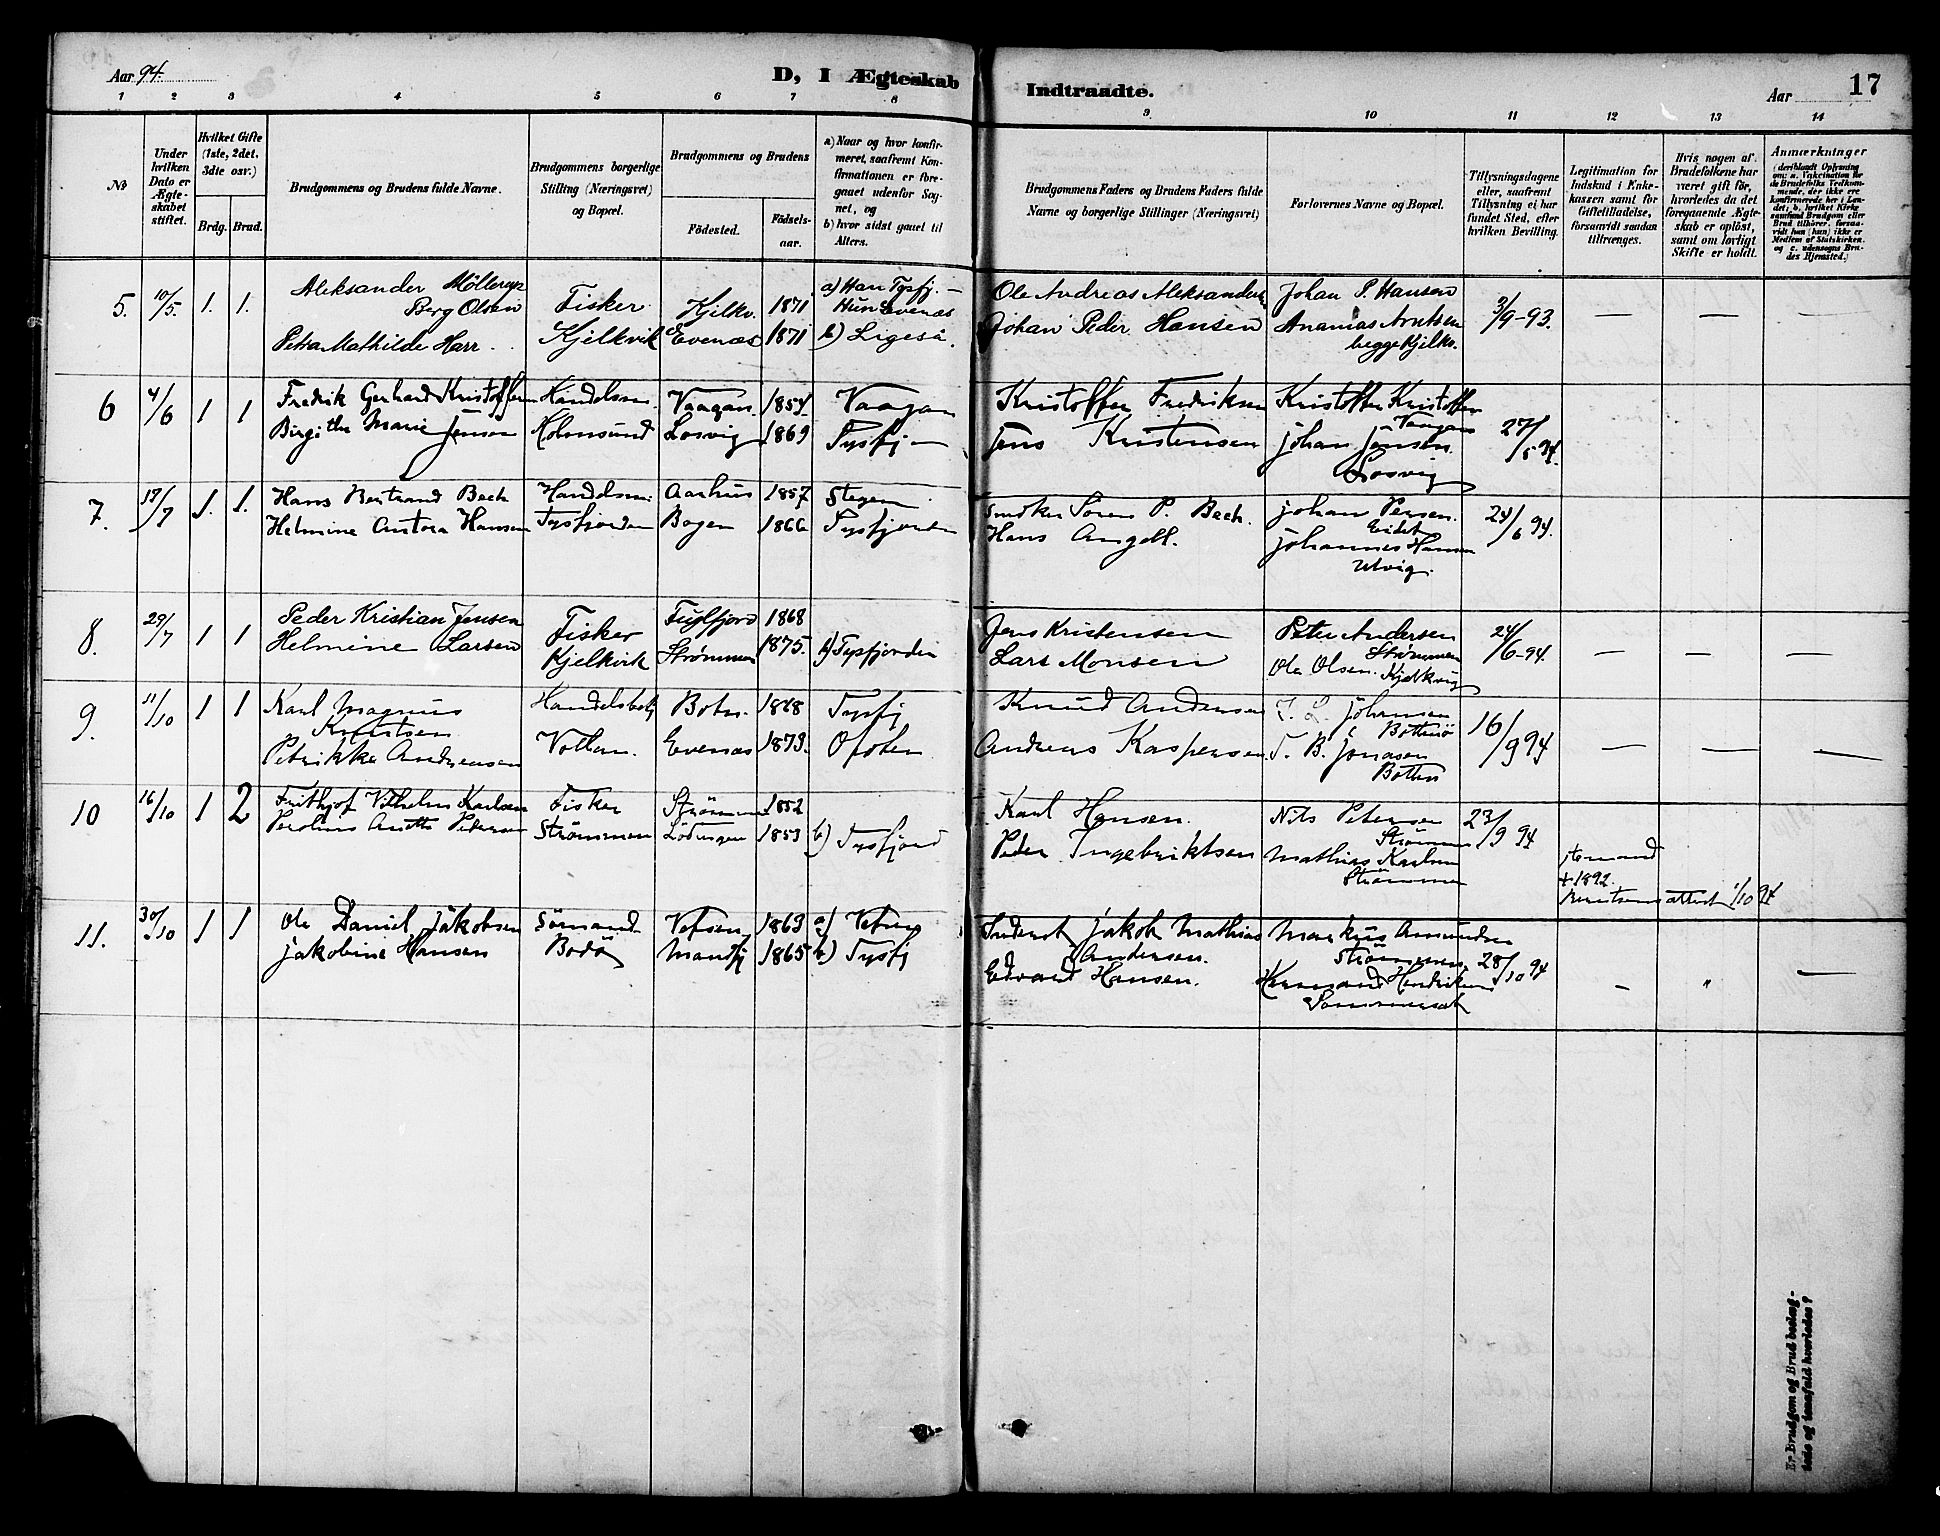 Aar 94.
D, I Ægteskab
Indtraadte.
Aar
17
1 2 3 4 5 6 7 8 9 10 11 12 13 14
№
Under hvilken Dato er Ægteskabet stiftet.
Hvilket Gifte (1ste, 2det, 3die osv.)
Brdg. Brud.
Brudgommens og Brudens fulde Navne.
Brudgommens borgerlige Stilling (Næringsvei) og Bopæl.
Brudgommens og Brudens
Fødested.
Fødselsaar.
a) Naar og hvor konfirmeret, saafremt Konfirmationen er foregaaet udenfor Sognet, og
b) hvor sidst gaaet til Alters.
Brudgommens Faders og Brudens Faders fulde Navne og borgerlige Stillinger (Næringsvei)
Forlovernes Navne og Bopæl.
Tillysningsdagene eller, saafremt Tillysning ei har fundet Sted, efter hvilken Bevilling.
Legitimation for Indskud i Enkekassen samt for Giftetilladelse, forsaavidt saadan tiltrænges.
Hvis nogen af Brudefolkene har været gift før, hvorledes da det foregaaende Ægteskab er opløst, samt om lovligt Skifte er holdt.
Anmærkninger
5. 10/5. 1. 1. Aleksander Möllerup Fisker Kjilkv. 1871 a) Han Tysfj. — Ole Andreas Aleksanders. Johan P. Hansen 3/9-93. — — —
Berg Olsen Hun Evenæs
Petra Mathilde Harr. Kjelkvik Evenæs 1871 b) Ligeså. Johan Peder Hansen Ananias Arntsen
begge Kjelkv.
6 4/6 1 1 Fredrik Gerhard Kristoffersen Handelsm. Vaagan 1854 Vaagan Kristoffer Fredriksen Kristoffer Kristoffers. 27/5 94.
Vaagan
Birgitha Marie Jensen Holmsund Losvig 1869 Tysfj — Jens Kristensen Johan Jensen
Losvig
7. 19/7 1. 1. Hans Bertrand Bech Handelsm. Aarhus 1857 Stegen Smokn Sören P. Bech. Johan Persen. 24/6 94.
Eidet
Helmine Antora Hansen Tysfjorden Bogen 1866 Tysfjorden Hans Angell. Johannes Hansen
Ulvig.
8. 29/7 1 1 Peder Kristian Jensen Fisker Fuglfjord 1868 Jens Kristensen Peter Andersen 24/6-94. — — —
Strömmen
Helmine Larsen Kjelkvik Strömmen 1875. b) Tysfjorden Lars Monsen Ole Olsen. Kjelkvig
9. 11/10 1 1 Karl Magnus Handelsbetj Botn. 1868 Tysfj Knud Andersen J. L. Johansen 16/9 94 — — —
Knutsen
Petrikke Andreasen Evenæs 1873. Ofoten Andreas Kaspersen J. B. Jonasen
Botten
10 16/10 1 2 Frithjof Vilhelm Karlsen Fisker Strömmen 1852 Karl Hansen. Nils Petersen 23/9 94
Strömmen
Anette Pedersen Strömmen Lödingen 1853 b) Tysfjord Peder Ingebriktsen Mathias Karlsen
Strömmen
+ 1892
attest 1/10 94
11. 30/10 1 1 Ole Daniel Jakobsen Sömand Vefsen 1863 a) Vefsen Inderst Jakob Mathias Markus Amundsen 28/10 94 — " —
Andersen. Strömmen.
Jakobine Hansen Bodö Mandfj 1865 b) Tysfj Edvard Hansen. Hendriksen
Sommerset
Er Brudgom og Brud beslægtede og i saafald hvorledes?